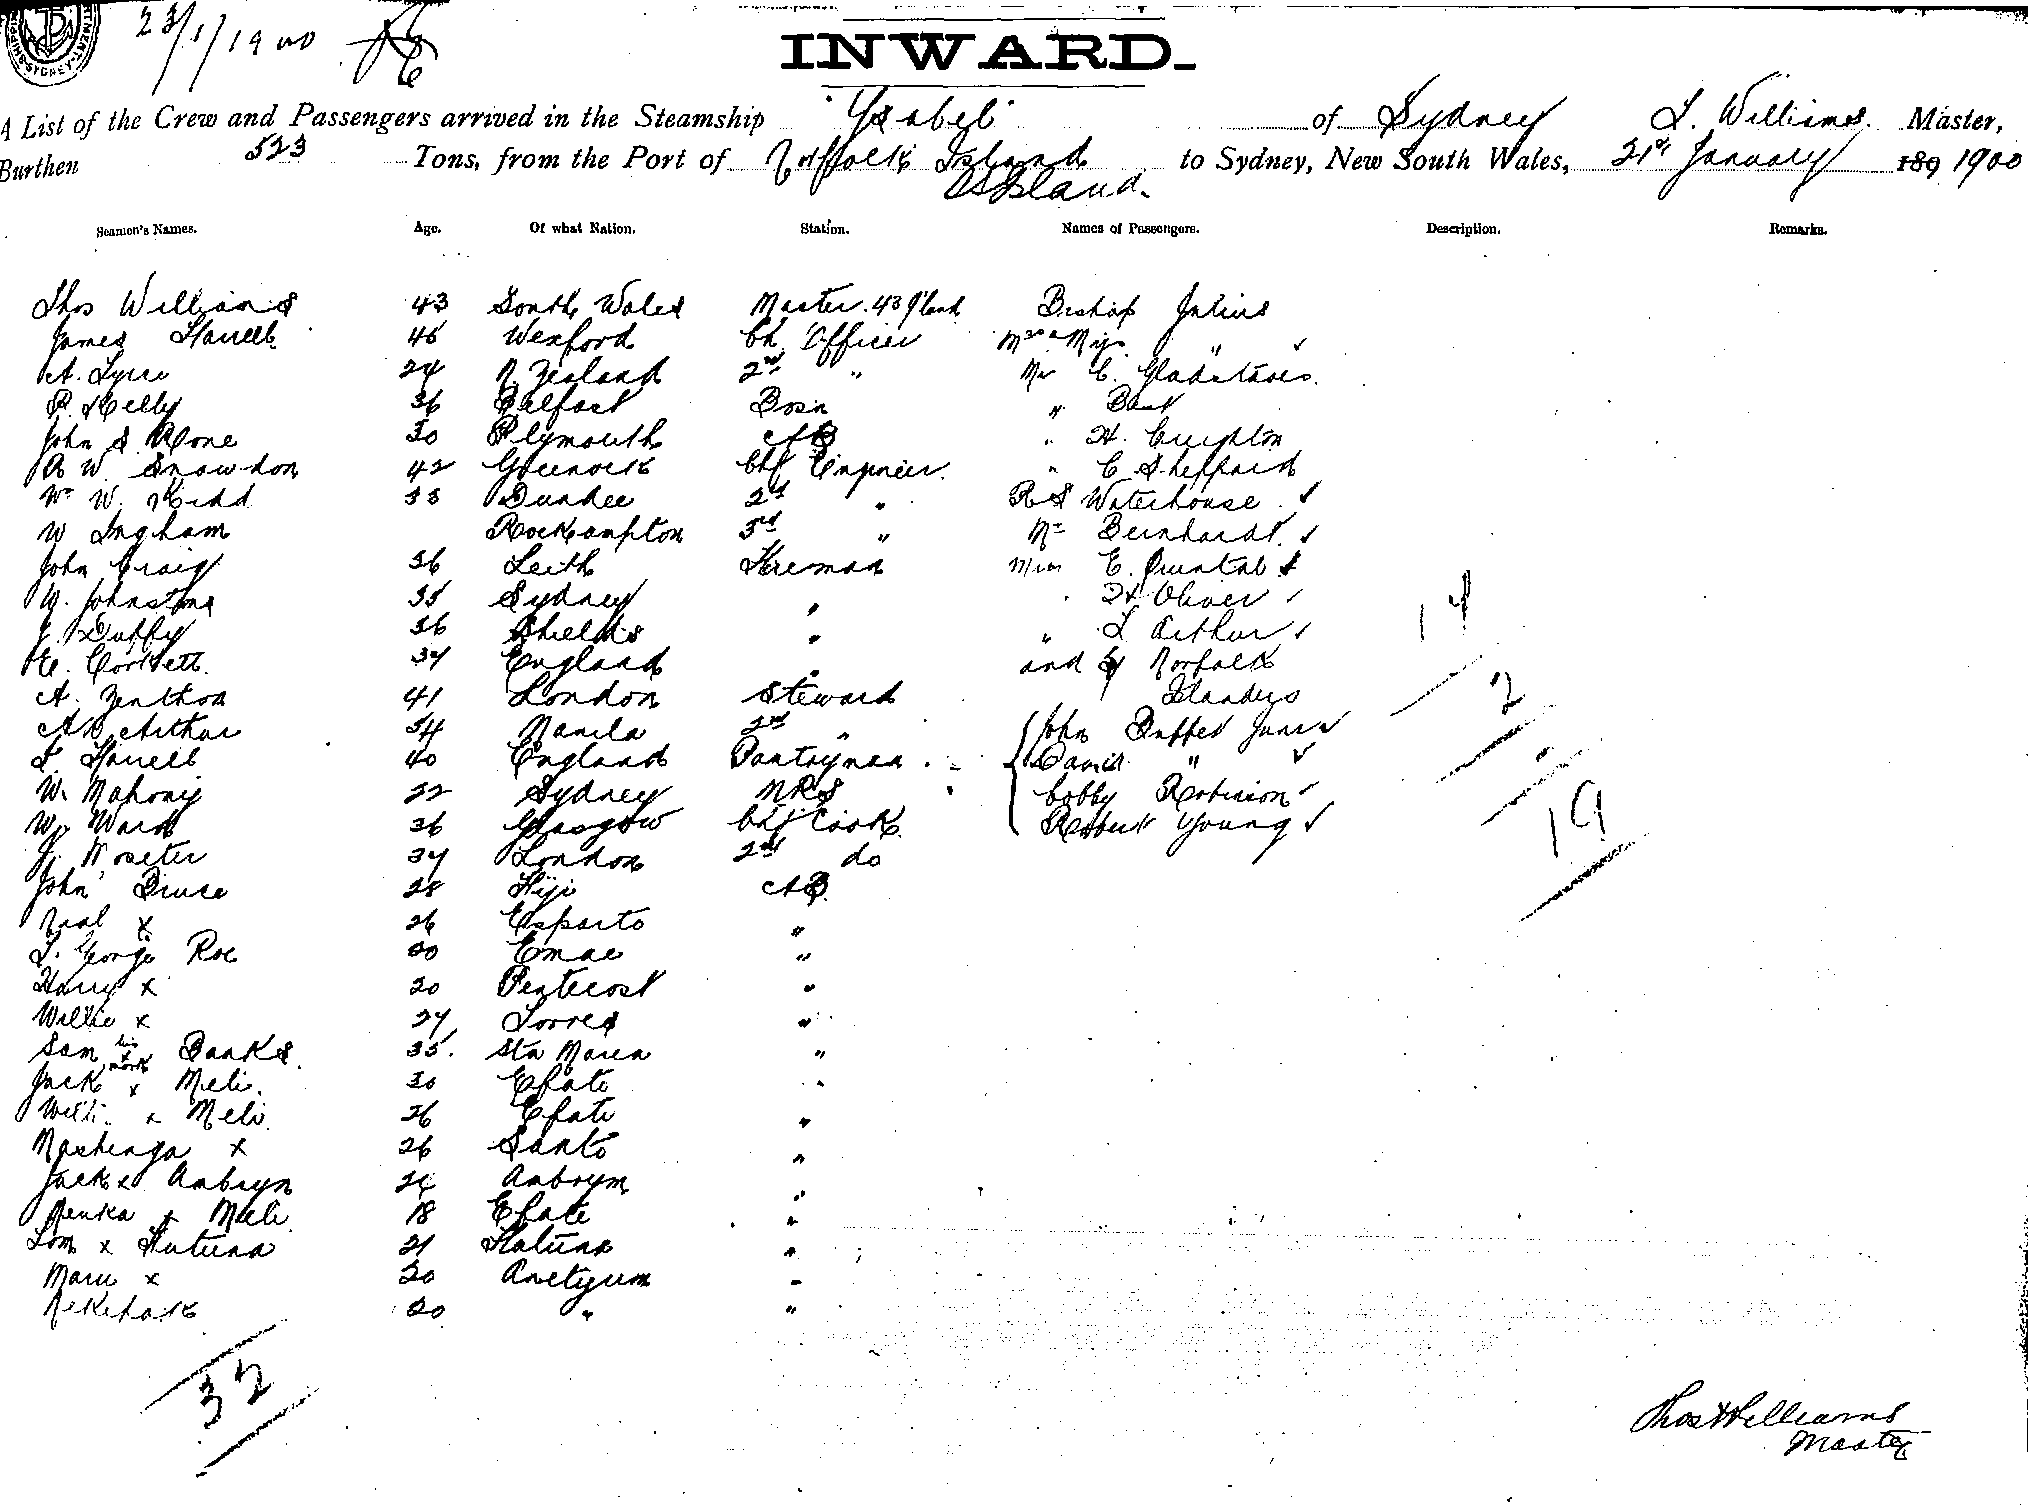 23/1/1900
INWARD.
A List of the Crew and Passengers arrived in the Steamship "Ysabel" of Sydney T. Williams Master,
Burthen 523 Tons, from the Port of Norfolk Island to Sydney, New South Wales, 21st January 189 1900
Island.
Seamen's Names. Age. Of what Nation. Station. Names of Passengers. Description. Remarks.
Thos Williams 43 South Wales Master 43 Bishop Julius
James Farrell 45 Wexford Ch Officer Mrs & Miss "
A. 24 N. Zealand 2nd " Mr C. Gladstones
P. Kelly 36 Belfast Bosn "
John S. Rone 30 Plymouth AB " H. Creighton
A W. Snowdon 42 Greenock Chf Engineer " C Sheppard
Wm W. Kidd 33 Dundee 2nd " R S Waterhouse
W Ingham Rockhampton 3rd " Mr Bernhardt
John Craig 36 Leith Fireman Miss E. Quintal
W. Johnstone 35 Sydney " " H Oliver
J. Duffy 36 Shields " " L Arthur
E. Corbett 34 England " and 4 Norfolk
A. Zenthon 41 London Steward Islanders
A B Arthur 34 Manila 2nd " John Buffet Junr
T Farrell 40 England Pantryman David "
W. Mahony 22 Sydney MRS Cobby Robinson
W. Ward 26 Glasgow Chf Cook Robert Young
J. 34 London 2nd do
John Bruce 28 Fiji AB
Noal x 26 Esparto "
T. George Roe 20 Emae "
Harry x 20 Pentecost "
Willie x 24 Torres "
Sam his x mark Banks 35 Sta Maria "
Jack x Meli 30 Efate "
Willi x Meli 26 Efate "
Mashenga x 26 Santo "
Jack x Ambrym 24 Ambrym "
Renka x Meli 18 Efate "
Tom x Futuna 21 Futuna "
Maru x 20 Anetyum "
20 " "
14
2
19
32
Thos Williams
Master